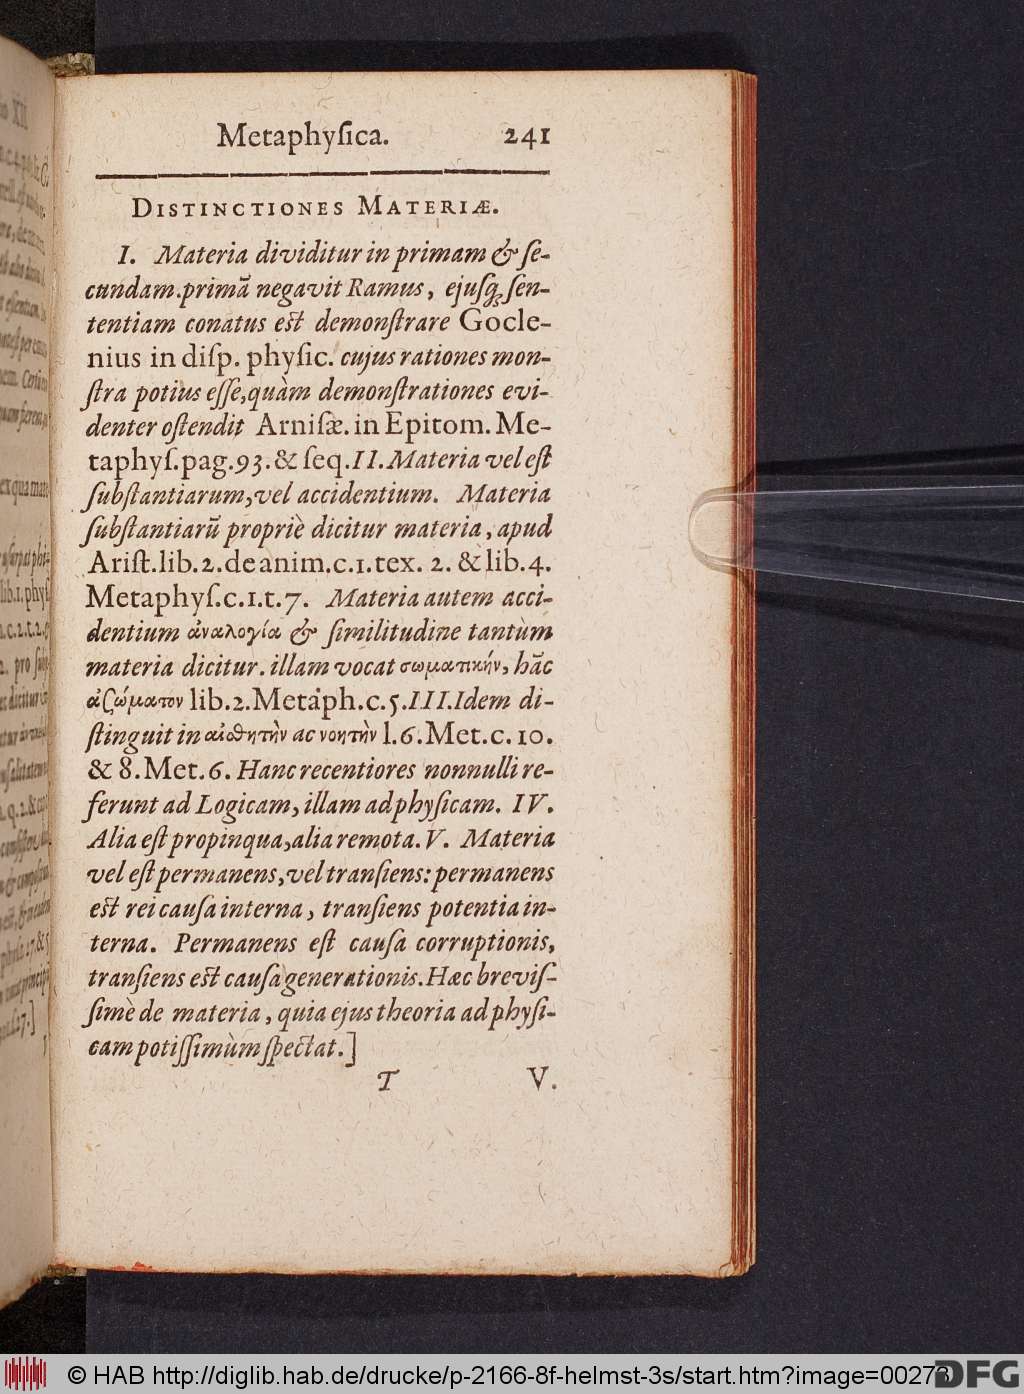 Metaphyſica. 241
DISTINCTIONES MATERIÆ.
I. Materia dividitur in primam & ſe-
cundam.primã negavit Ramus, ejuſq; ſen-
tentiam conatus eſt demonſtrare Gocle-
nius in diſp. phyſic. cujus rationes mon-
ſtra potius eſſe,quàm demonſtrationes evi-
denter oſtendit Arniſæ. in Epitom. Me-
taphyſ.pag.93.& ſeq.II.Materia vel eſt
ſubſtantiarum,vel accidentium. Materia
ſubſtantiarũ propriè dicitur materia, apud
Ariſt.lib.2.de anim.c.1.tex. 2. & lib.4.
Metaphyſ.c.1.t.7. Materia autem acci-
dentium ἀναλογία & ſimilitudine tantùm
materia dicitur. illam vocat σωματικήν, hãc
ἀζώματον lib.2.Metaph.c.5.III.Idem di-
ſtinguit in αἰσθητὴν ac νοητὴν l.6.Met.c.10.
& 8.Met.6. Hanc recentiores nonnulli re-
ferunt ad Logicam, illam ad phyſicam. IV.
Alia eſt propinqua,alia remota.V. Materia
vel eſt permanens,vel tranſiens: permanens
eſt rei cauſa interna, tranſiens potentia in-
terna. Permanens eſt cauſa corruptionis,
tranſiens eſt cauſa generationis.Hæc breviſ-
ſimè de materia, quia ejus theoria ad phyſi-
cam potiſſimùm ſpectat.]
T V.
© HAB http://diglib.hab.de/drucke/p-2166-8f-helmst-3s/start.htm?image=00273
DFG